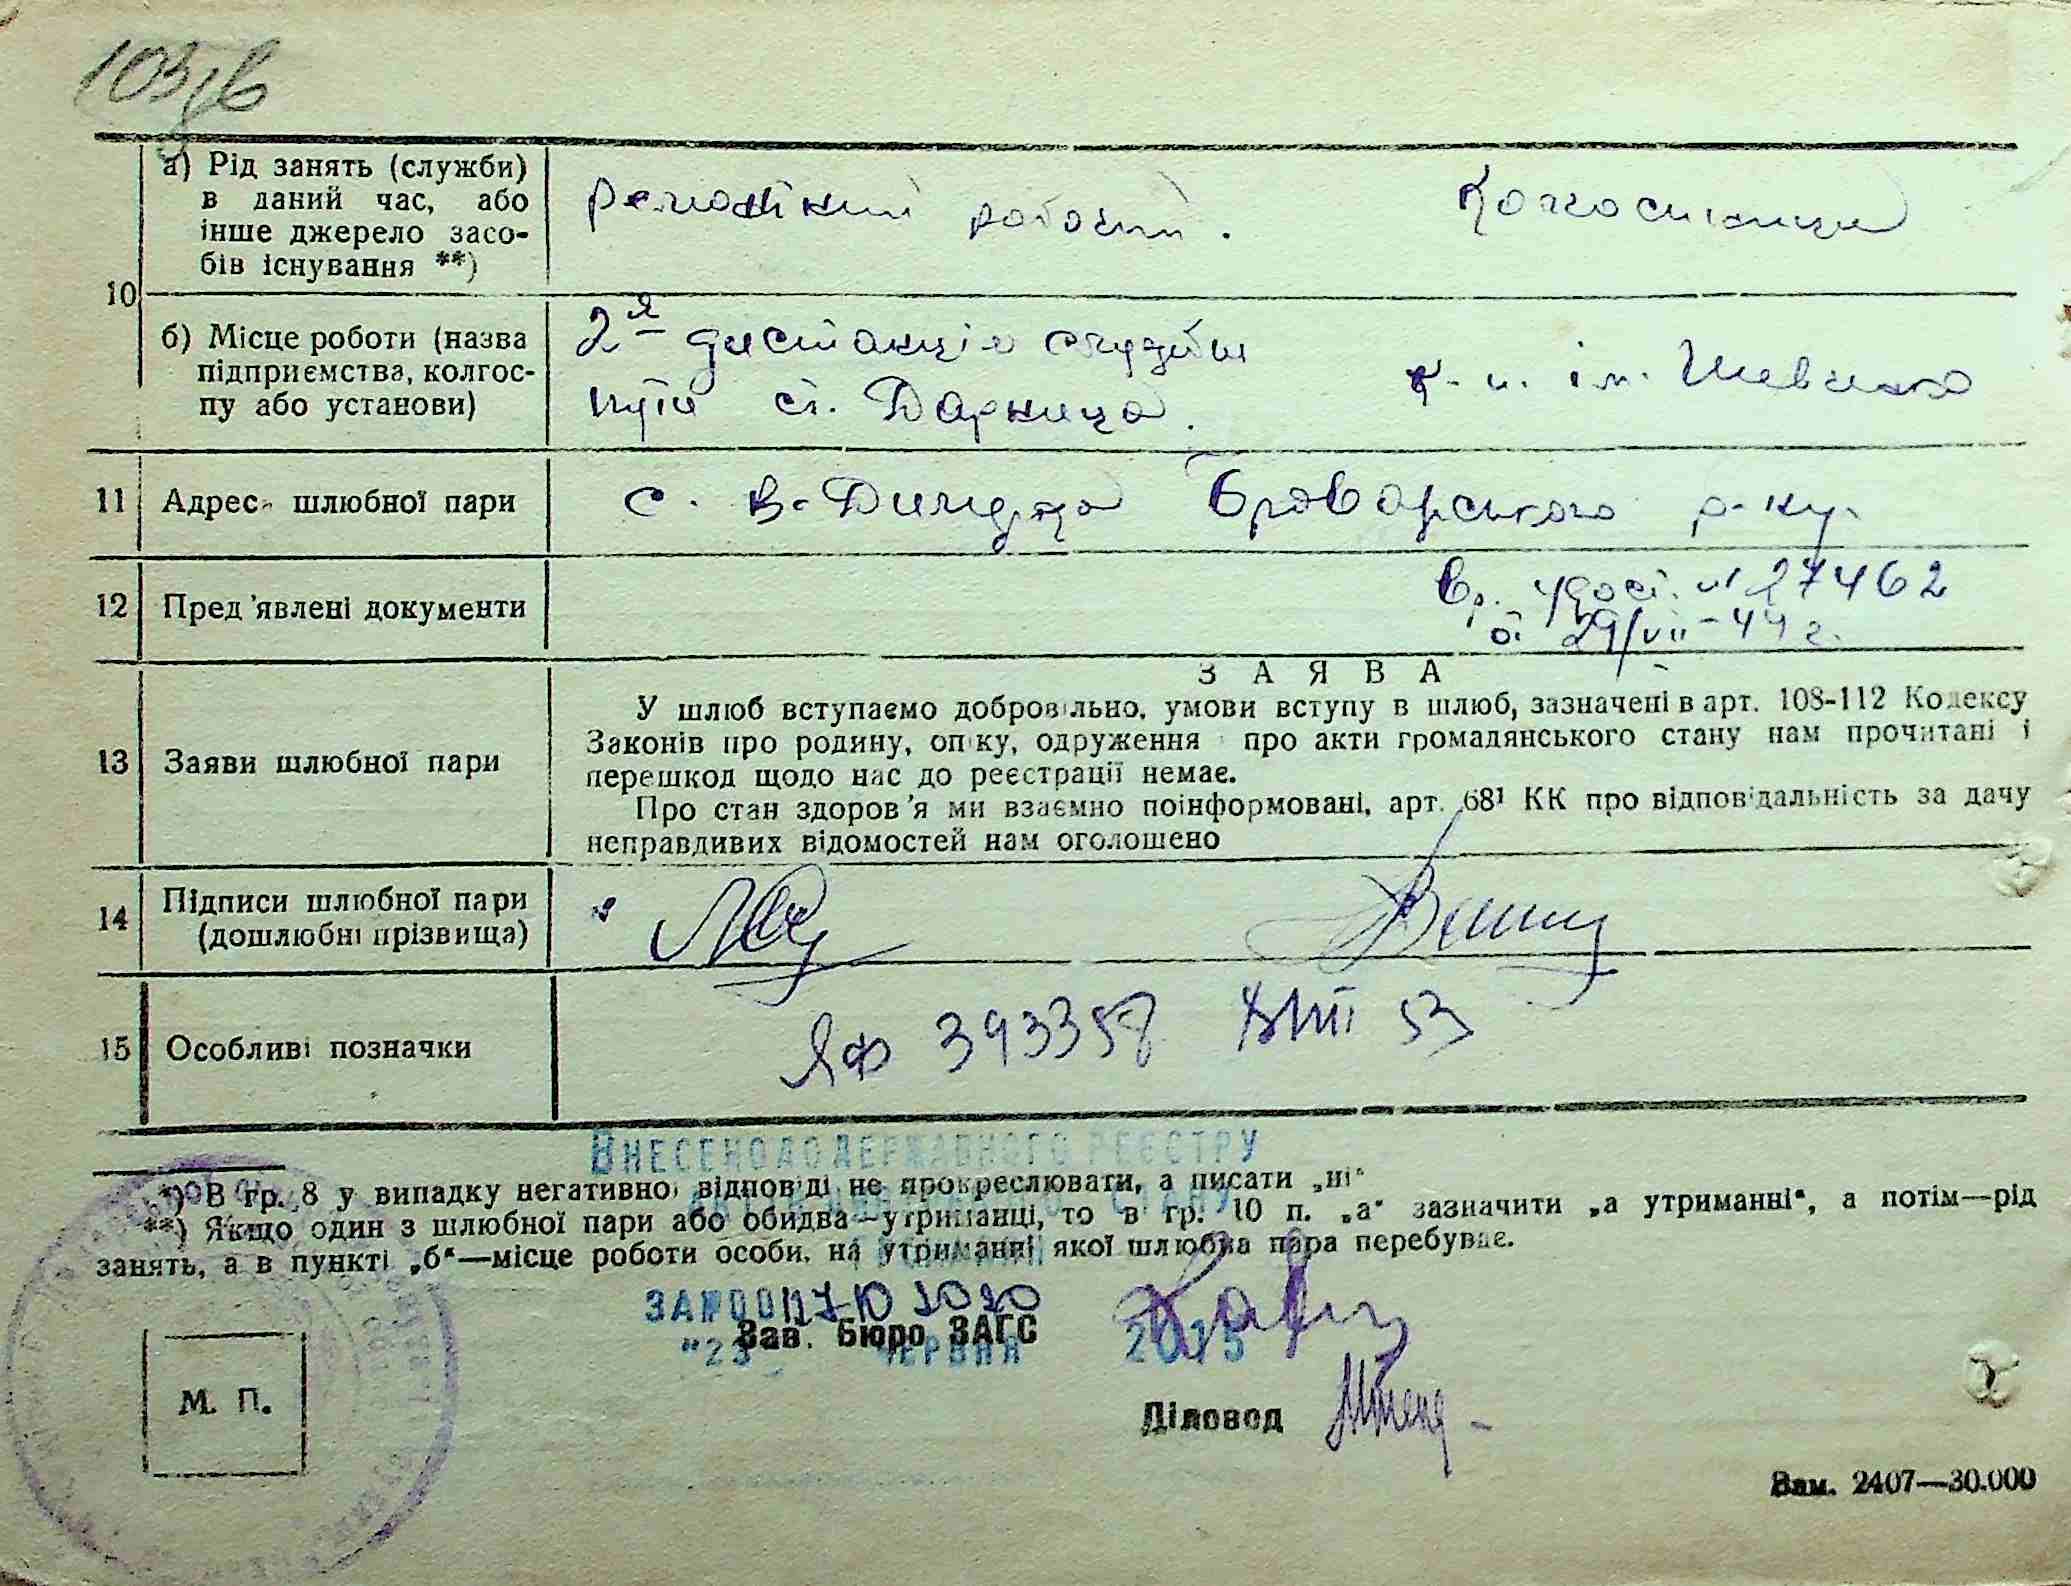 103/в
а) Рід занять (служби)
в даний час, або
інше джерело засо-
бів існування **)
ремонтний робочий.
Колгоспниця
10
б) Місце роботи (назва
підприємства, колгос-
пу або установи)
2я дистанція служби
путі ст. Дарниця.
к-п. ім. Шевченко
11 Адреса шлюбної пари
с. В-Димерка Броварського р-ну.
12 Пред'явлені документи
Вр. удост. № 27462
от 29/VII-44 г.
З А Я В А
13 Заяви шлюбної пари
У шлюб вступаємо добровільно, умови вступу в шлюб, зазначені в арт. 108-112 Кодексу
Законів про родину, опіку, одруження про акти громадянського стану нам прочитані і
перешкод щодо нас до реєстрації немає.
Про стан здоров'я ми взаємно поінформовані, арт. 68¹ КК про відповідальність за дачу
неправдивих відомостей нам оголошено
14 Підписи шлюбної пари
(дошлюбні прізвища)
15 Особливі позначки
ЯФ 393358 53
ВНЕСЕНО ДО ДЕРЖАВНОГО РЕЄСТРУ
*) В гр. 8 у випадку негативної відповіді не прокреслювати, а писати „ні“
СТАНУ
**) Якщо один з шлюбної пари або обидва—утриманці, то в гр. 10 п. „а“ зазначити „а утриманні“, а потім—рід
занять, а в пункті „б“—місце роботи особи, на утриманні якої шлюбна пара перебуває.
Зав. Бюро ЗАГС
"23 ЧЕРВНЯ 2015
М. П.
Діловод
Зам. 2407—30.000